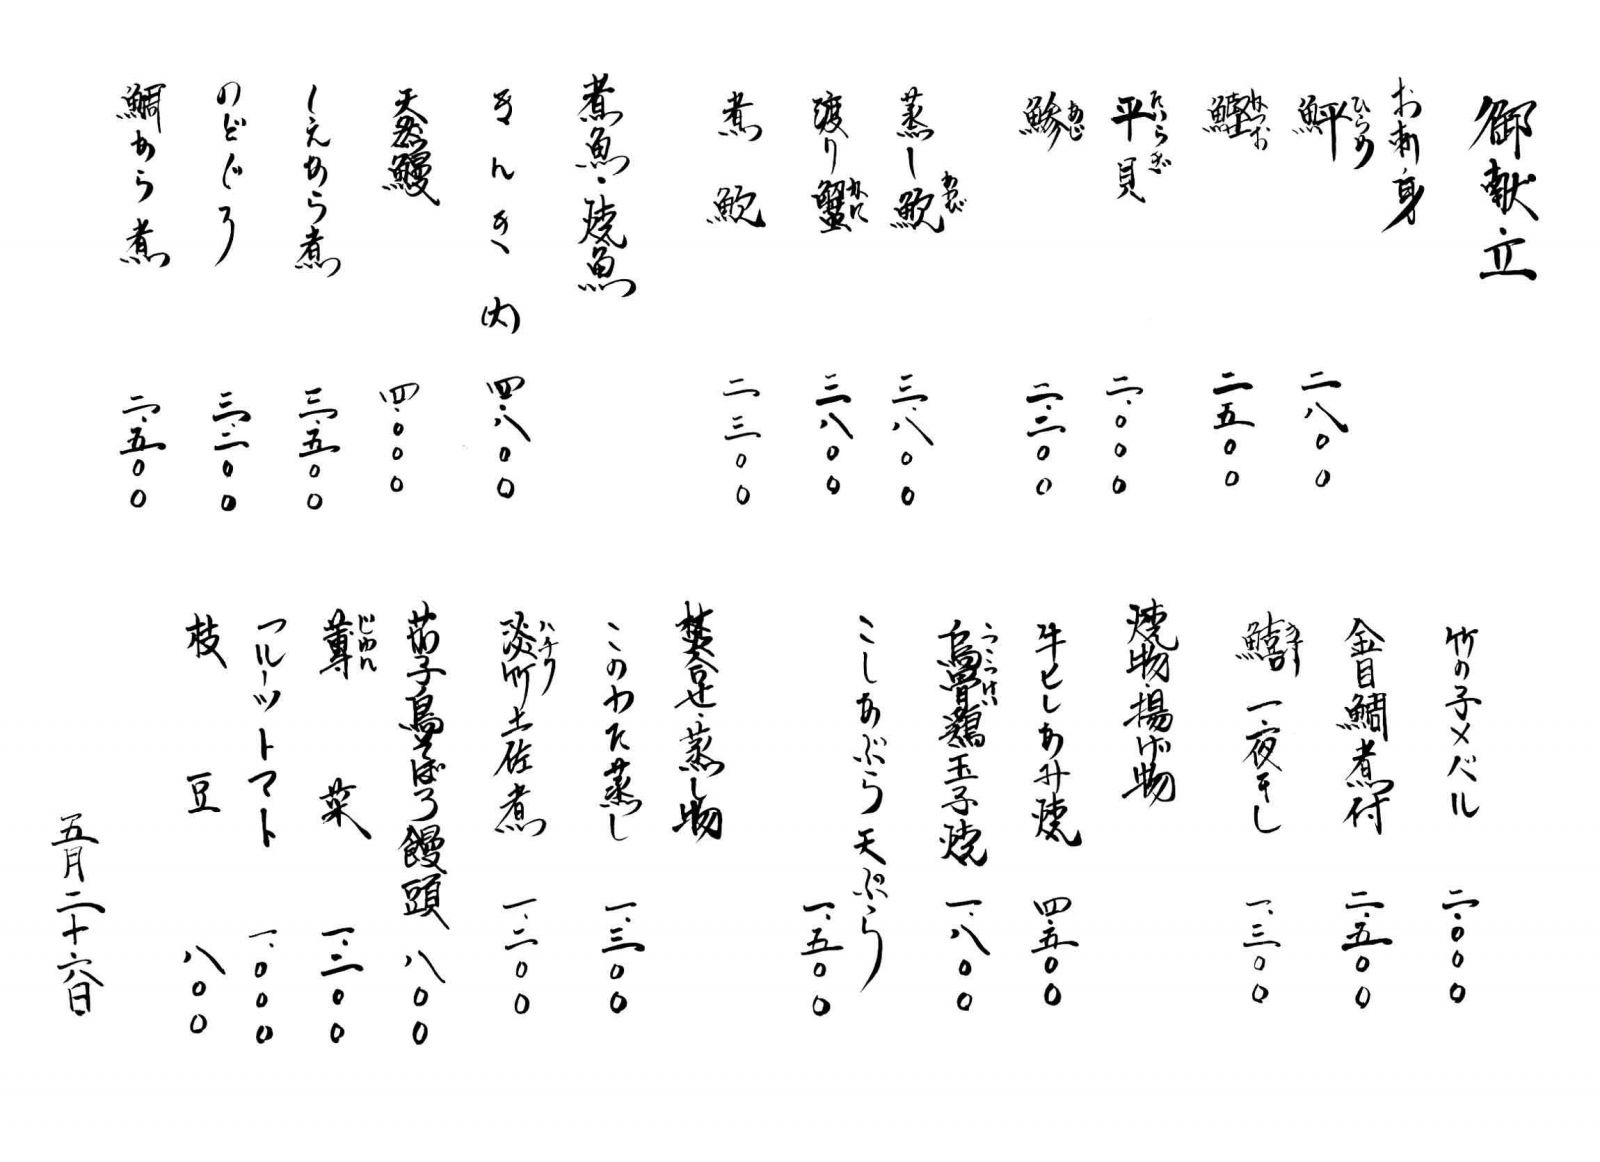 御献立
お刺身
鮃 ひらめ 二八〇〇
鰹 かつお 二五〇〇
平貝 たいらぎ 二、〇〇〇
鯵 あじ 二、二〇〇
蒸し鮑 あわび 三、八〇〇
渡り蟹 かに 三八〇〇
煮鮑 二三〇〇
煮魚・焼魚
きんき(大) 四、八〇〇
天然鰻 四、〇〇〇
しえあら煮 三、五〇〇
のどぐろ 三、二〇〇
鯛あら煮 二、五〇〇
竹の子メバル 二、〇〇〇
金目鯛煮付 二、五〇〇
鱚 きす 一夜干し 一、三〇〇
焼物・揚げ物
牛ヒレあみ焼 四、五〇〇
烏骨鶏 うこっけい 玉子焼 一、八〇〇
こしあぶら天ぷら 一、五〇〇
焚合せ・蒸し物
このわた蒸し 一、三〇〇
淡竹 ハチク 土佐煮 一、二〇〇
茄子鳥そぼろ饅頭 八〇〇
蓴菜 じゅん 一、二〇〇
フルーツトマト 一、〇〇〇
枝豆 八〇〇
五月二十六日